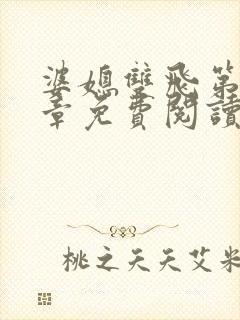 婆媳雙飛第
章免費閱讀
桃之夭夭艾米